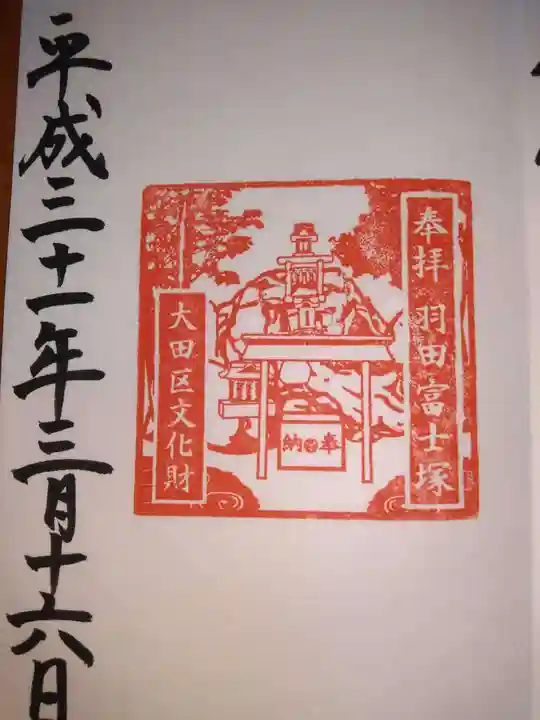 奉拝 羽田富士塚
奉納
大田区文化財
平成三十一年三月十六日